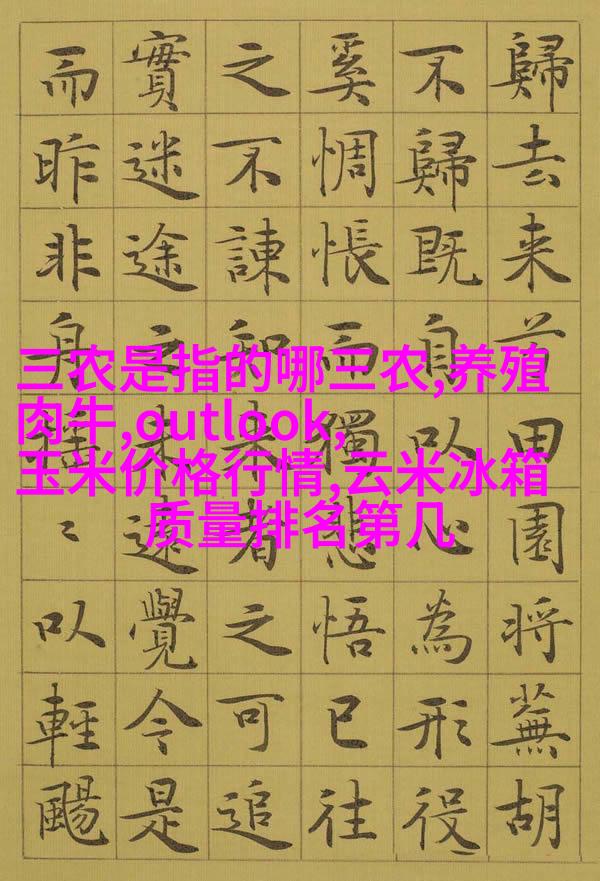 歸去来兮田園将蕪胡
不歸既自以心為形役
奚惆悵而獨悲悟已往
之不諫知来者之可追
實迷途之未遠覺今是
而昨非舟摇〻以輕颺
三农是指的哪三农,养殖
肉牛,outlook,
玉米价格行情,云米冰箱
质量排名第几